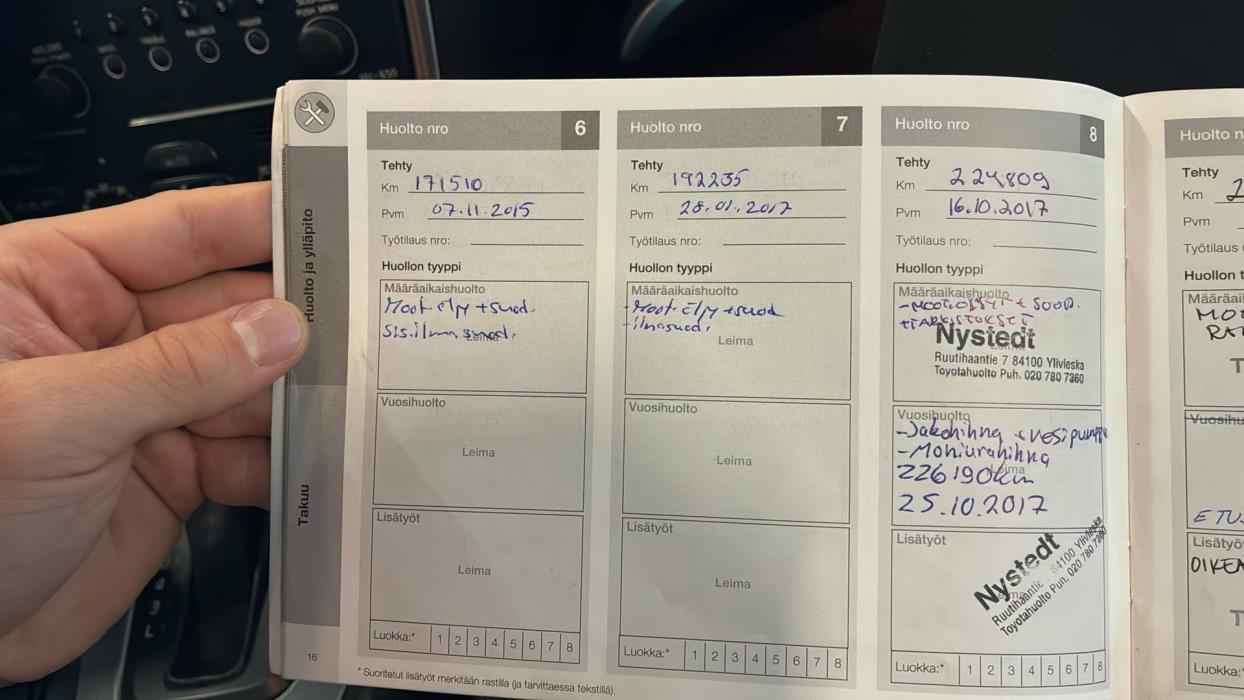 Huolto ja ylläpito
Takuu
Huolto nro 6
Tehty
Km 171510
Pvm 07.11.2015
Työtilaus nro:
Huollon tyyppi
Määräaikaishuolto
Moot. öljy + suod.
Sis.ilma suod.
Vuosihuolto
Leima
Lisätyöt
Leima
Luokka:* 1 2 3 4 5 6 7 8
Huolto nro 7
Tehty
Km 192235
Pvm 28.01.2017
Työtilaus nro:
Huollon tyyppi
Määräaikaishuolto
- Moot. öljy + suod
- ilmasuod.
Leima
Vuosihuolto
Leima
Lisätyöt
Leima
Luokka:* 1 2 3 4 5 6 7 8
Huolto nro 8
Tehty
Km 224809
Pvm 16.10.2017
Työtilaus nro:
Huollon tyyppi
Määräaikaishuolto
- MOOTORIÖLJYT + SUOD.
+TARKISTUKSET
Nystedt
Ruutihaantie 7 84100 Ylivieska
Toyotahuolto Puh. 020 780 7360
Vuosihuolto
- Jakohihna + vesipumppu
- Moniurahihna
Leima
226190km
25.10.2017
Lisätyöt
Nystedt
Ruutihaantie 84100 Ylivieska
Toyotahuolto Puh. 020 780 7360
Luokka:* 1 2 3 4 5 6 7 8
16
* Suoritetut lisätyöt merkitään rastilla (ja tarvittaessa tekstillä).
Huolto
Tehty
Km 2
Pvm
Työtilaus
Huollon
Vuosihu
ETU
Lisätyö
OIKEA
Luokka: